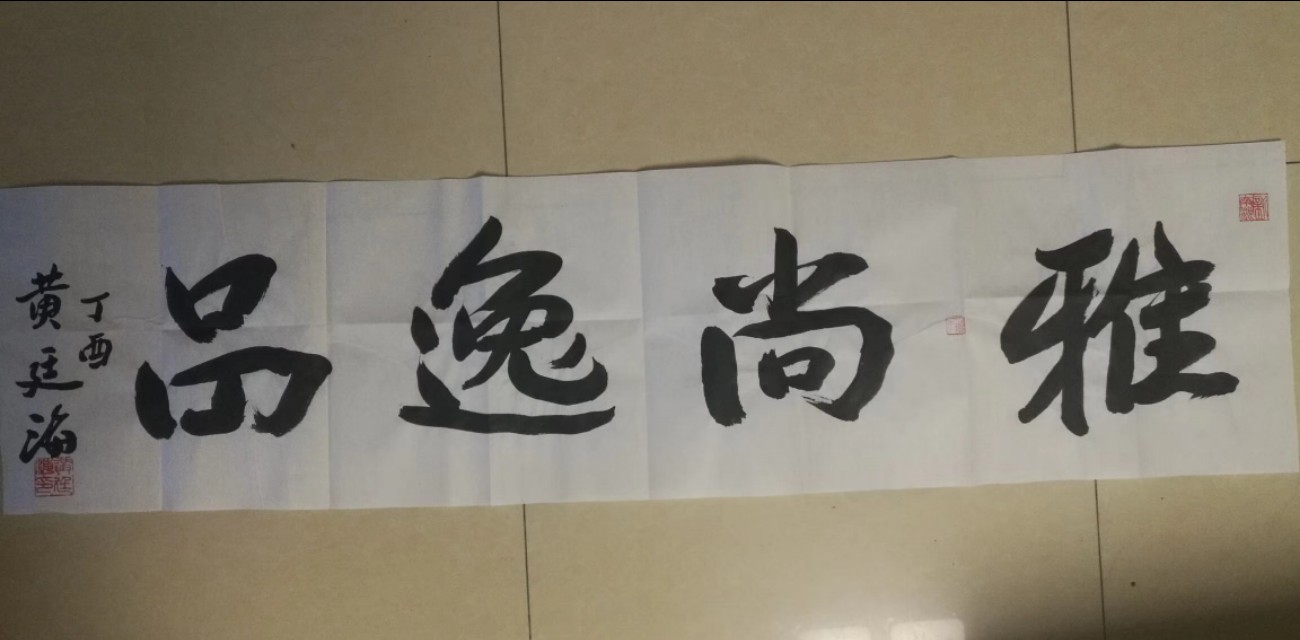 雅尚逸品
丁酉
黄廷海